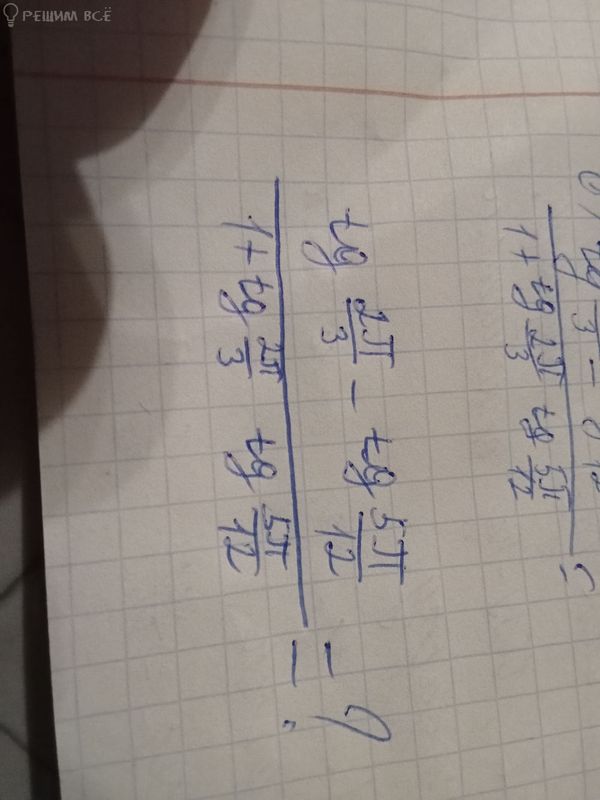 РЕШИМ ВСЁ
tg 2π/3 - tg 5π/12
1 + tg 2π/3 tg 5π/12
= ?
1 + tg 2π/3 tg 5π/12